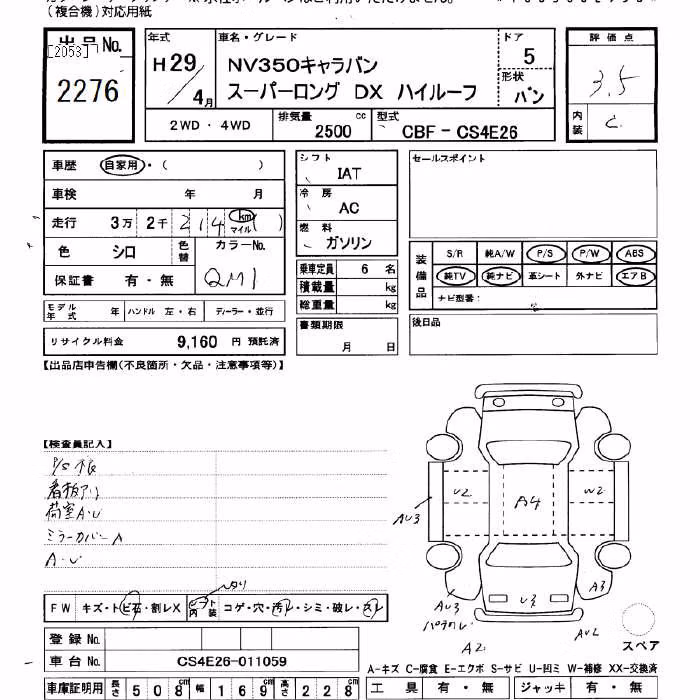 (複合機)対応用紙
出品No.
[2053]
2276
年式
H29/4月
車名・グレード
NV350キャラバン
スーパーロング DX ハイルーフ
ドア
5
形状
バン
評価点
3.5
内装
C
2WD・4WD
排気量
2500 cc
型式
CBF - CS4E26
車歴 自家用・( )
車検 年 月
走行 3万 2千 214 km マイル ( )
色 シロ 色替 カラーNo.
QM1
保証書 有・無
モデル年式 年 ハンドル 左・右 ディーラー・並行
リサイクル料金 9,160 円 預託済
シフト
IAT
冷房
AC
燃料
ガソリン
乗車定員 6 名
積載量 kg
総重量 kg
書類期限
月 日
セールスポイント
装備品
S/R 純A/W P/S P/W ABS
純TV 純ナビ 革シート 外ナビ エアB
ナビ型番:
後日品
【出品店申告欄(不良箇所・欠品・注意事項等)】
【検査員記入】
P/S不良
看板アリ
荷室A・U
ミラーカバーA
A・U
U2
A4
W2
AU3
AU3
U3
A3
A2
AU2
スペア
FW キズ・トビ石・割レX
シート内装 コゲ・穴・汚レ・シミ・破レ・スレ
登録No.
車台No. CS4E26-011059
車庫証明用 長さ 508cm 幅 169cm 高さ 228cm
A-キズ C-腐食 E-エクボ S-サビ U-凹ミ W-補修 XX-交換済
工具 有・無 ジャッキ 有・無